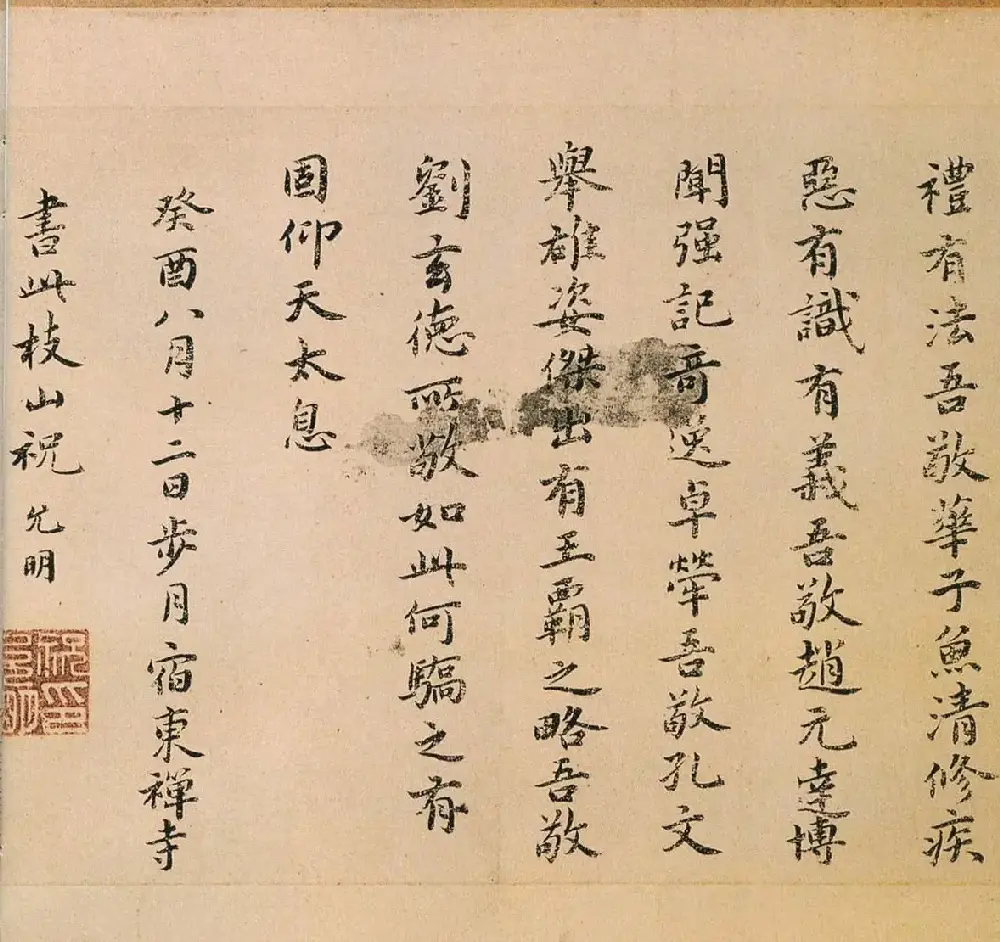 禮有法吾敬華子魚清修疾
惡有識有義吾敬趙元達博
聞强記奇逸卓犖吾敬孔文
舉雄姿傑出有王霸之略吾敬
劉玄德所敬如此何驕之有
固仰天太息
癸酉八月十二日步月宿東禪寺
書此枝山祝允明
祝允明印